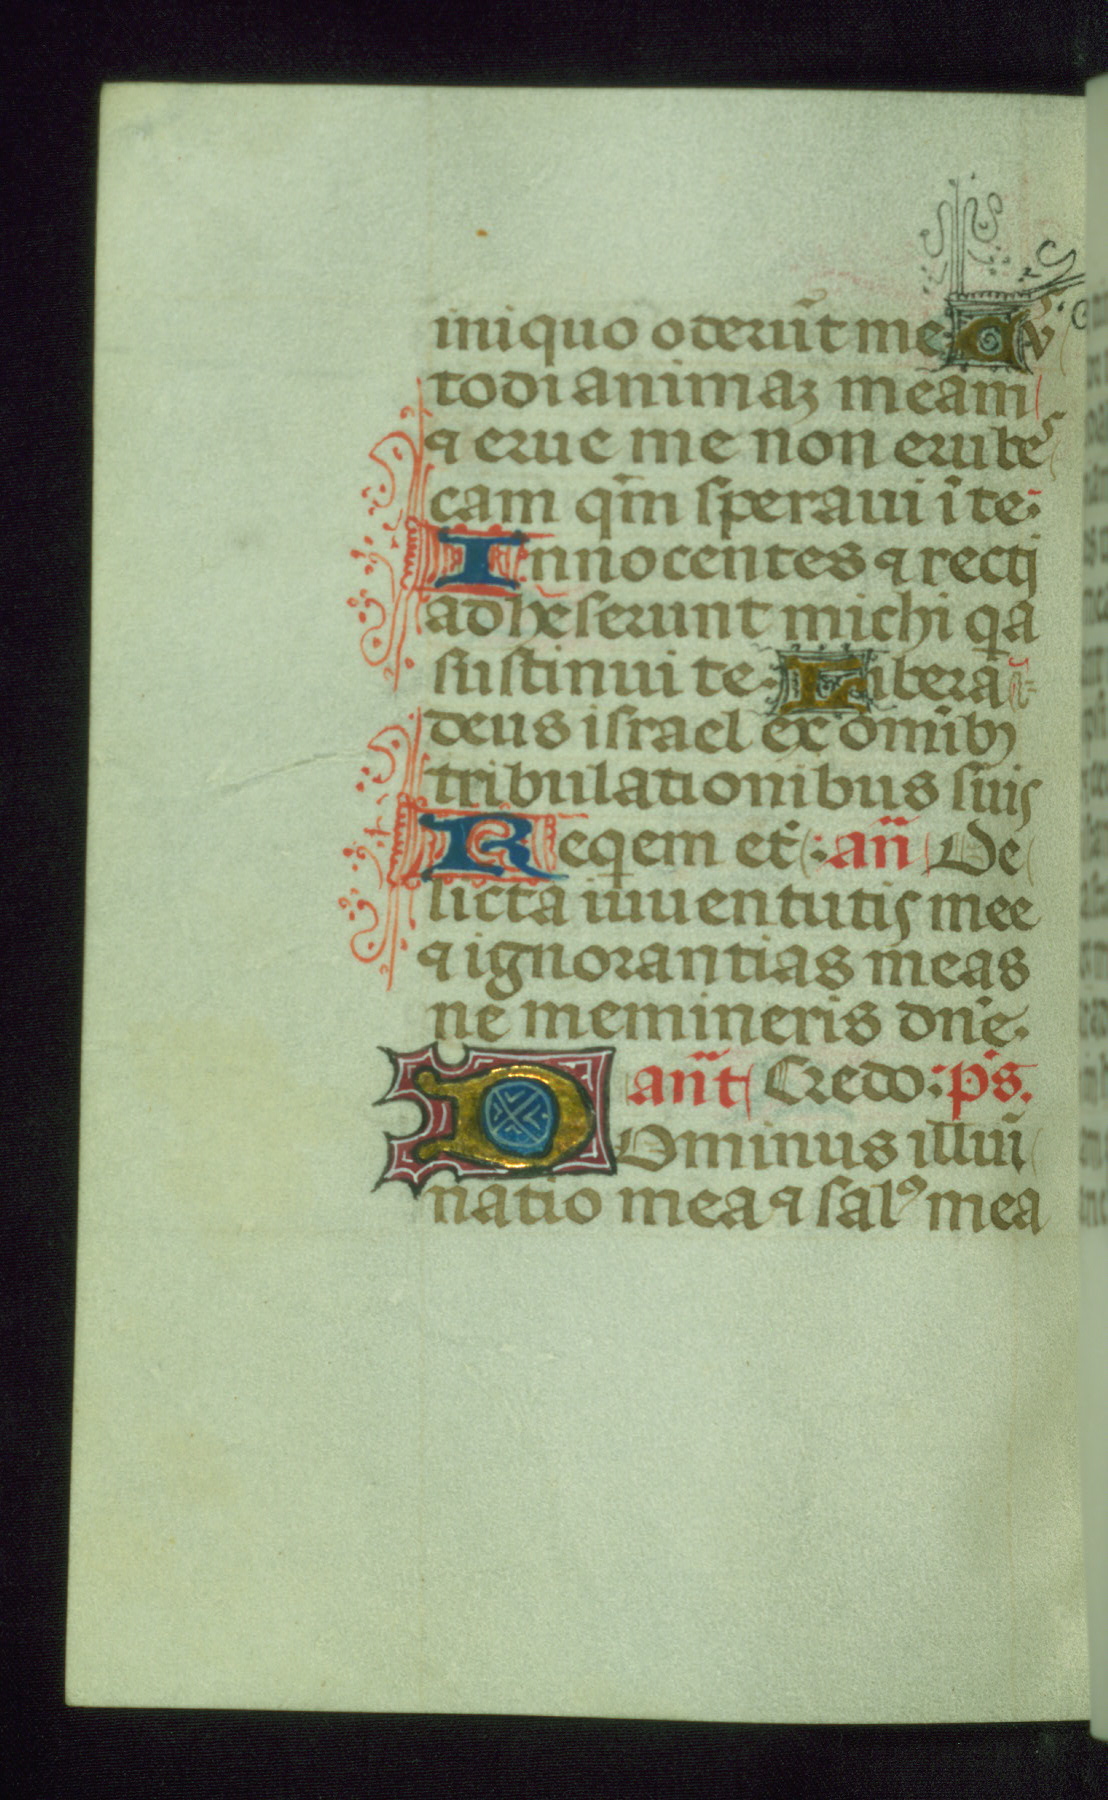 iniquo oderūt me Cuſ
todi animaꝫ meam
⁊ erue me non erubeſ
cam qm̄ ſperaui ī te:
Innocentes ⁊ recti
adheſerunt michi qa
ſuſtinui te: Libera
deus iſrael ex om̄ibꝫ
tribulationibus ſuis
Reqem et̄: an̄ De
licta iuuentutis mee
⁊ ignorantias meas
ne memineris dn̄e.
an̄t Credo: ps̄.
DOminus illuī
natio mea ⁊ ſalꝰ mea